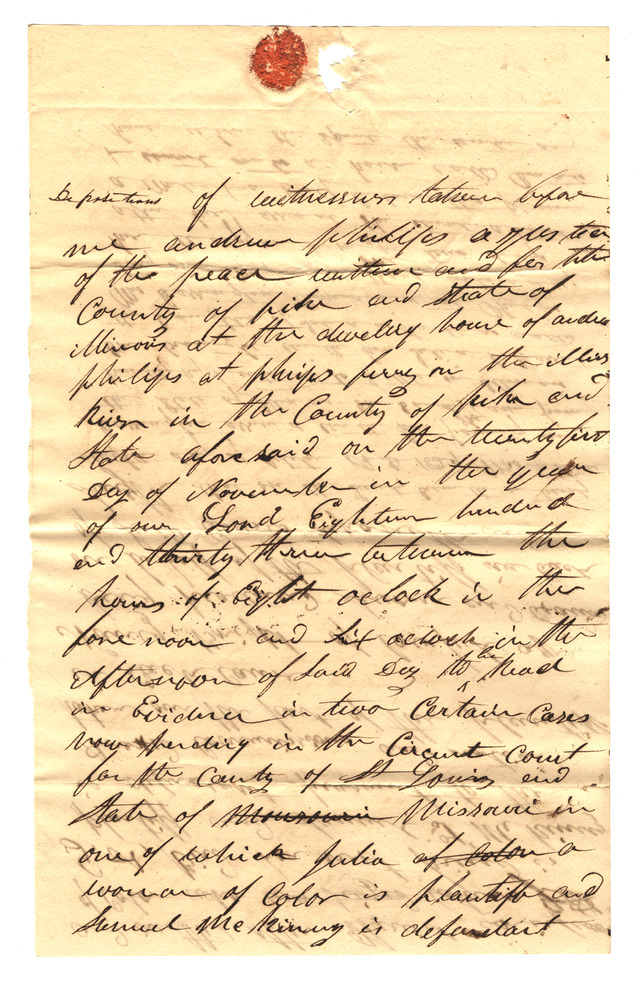 Depositions of witnesses taken before
me andrew philips a Justice
of the peace within and for the
County of pike and State of
illinois at the dweling house of andrew
philips at phlips ferry on the illiois
River in the County of pike and
State aforesaid on the twenty first
Day of November in the year
of our Lord Eighteen hundred
and thirty three between the
hours of Eight oclock in the
fore noon and Six oclock in the
afternoon of Said Day to be Read
in Evidence in two Certain Cases
now pending in the Circuit Court
for the County of St Louis and
State of Missouri in
one of which Julia of Color a
woman of Color is plantiff and
Samuel McKinny is defandant